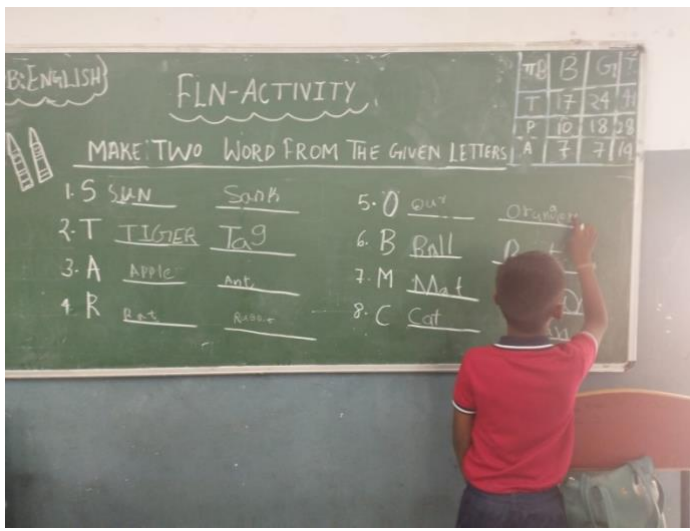 B:ENGLISH
FLN-ACTIVITY
B G T
T 17 24 41
P 10 18 28
A 7 7 14
MAKE TWO WORD FROM THE GIVEN LETTERS
1. S SUN Sank
2. T TIGER Tag
3. A Apple Ant
4 R Rat
5. O our
6. B Ball
7. M Mat
8. C Cat